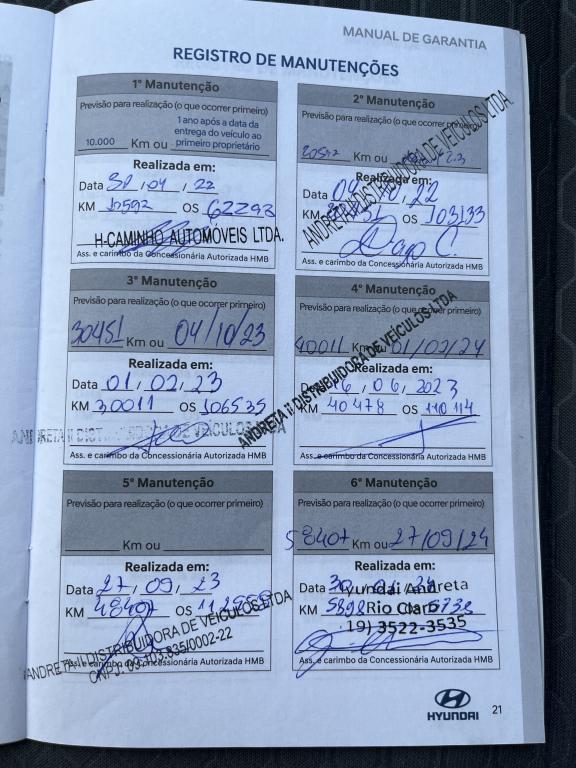 MANUAL DE GARANTIA
REGISTRO DE MANUTENÇÕES
1ª Manutenção
Previsão para realização (o que ocorrer primeiro)
10.000 Km ou 1 ano após a data da entrega do veículo ao primeiro proprietário
Realizada em:
Data /04/22
KM 10592 OS 62293
H-CAMINHO AUTOMÓVEIS LTDA.
Ass. e carimbo da Concessionária Autorizada HMB
2ª Manutenção
Previsão para realização (o que ocorrer primeiro)
20592 Km ou
Realizada em:
Data 04 22
KM OS 103133
ANDRETA II DISTRIBUIDORA DE VEÍCULOS LTDA.
Ass. e carimbo da Concessionária Autorizada HMB
3ª Manutenção
Previsão para realização (o que ocorrer primeiro)
30451 Km ou 04/10/23
Realizada em:
Data 01/02/23
KM 30011 OS 106535
ANDRETA II DISTRIBUIDORA DE VEÍCULOS LTDA
Ass. e carimbo da Concessionária Autorizada HMB
4ª Manutenção
Previsão para realização (o que ocorrer primeiro)
40011 Km ou 01/02/24
Realizada em:
Data 6/06/2023
KM 40478 OS 110114
ANDRETA II DISTRIBUIDORA DE VEÍCULOS LTDA
Ass. e carimbo da Concessionária Autorizada HMB
5ª Manutenção
Previsão para realização (o que ocorrer primeiro)
Km ou
Realizada em:
Data 27/09/23
KM 48407 OS
ANDRETA II DISTRIBUIDORA DE VEÍCULOS LTDA
CNPJ: 09.103.835/0002-22
Ass. e carimbo da Concessionária Autorizada HMB
6ª Manutenção
Previsão para realização (o que ocorrer primeiro)
58407 Km ou 27/09/24
Realizada em:
Data 30
Hyundai Andreta
KM 5898 OS
Rio Claro
19) 3522-3535
Ass. e carimbo da Concessionária Autorizada HMB
HYUNDAI
21